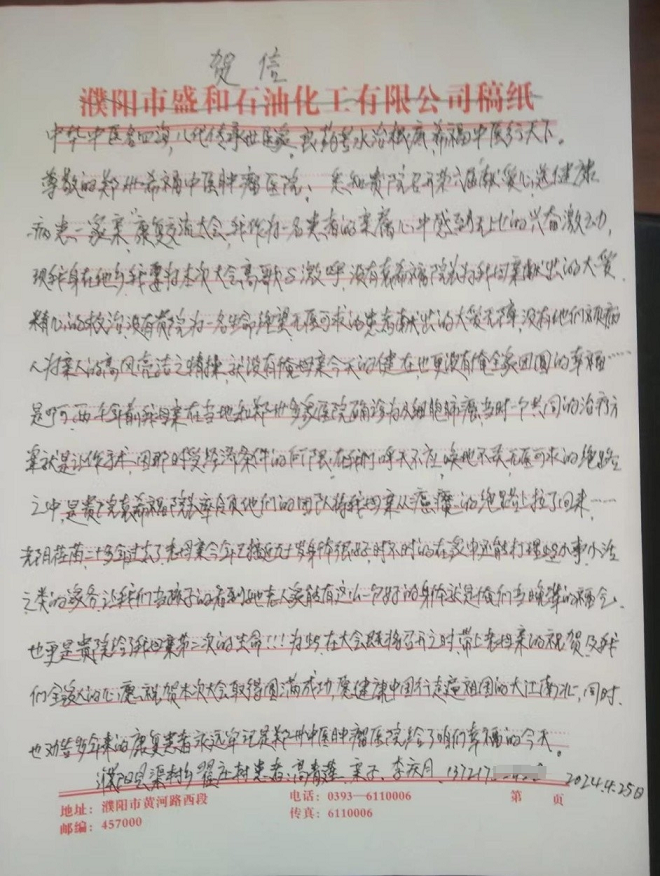 贺信
濮阳市盛和石油化工有限公司稿纸
中华中医名四海,八代传承世医家,良药苦水治根底,希福中医行天下。
尊敬的郑州希福中医肿瘤医院、悉知贵院召开第六届"献爱心送健康
病患一家亲"康复交流大会,我作为一名患者的亲属心中感到无上的兴奋激动,
现我身在他乡我要为本次大会高歌与激呼,没有袁希福院长为我母亲献出的大爱
精心的救治,没有贵院为一名生命绝望无医可求的患者献出的大爱无疆,没有他们视病
人为亲人的高风亮洁之情操,就没有俺母亲今天的健在,也更没有俺全家团圆的幸福……
是啊,两千年前我母亲在当地和郑州多家医院确诊为小细胞肺癌,当时一个共同的治疗方
案就是让作手术,因那时受经济条件的所限,在我们呼天不应,唤地不灵无医可求的绝路
之中,是贵院袁希福院长率自及他们的团队将我母亲从癌魔的绝路上拉了回来……
光阴荏苒二十多年过去了,老母亲今年已接近九十岁身体很好,时不时的在家中还能打理些小事小活
之类的家务,让我们当孩子的看到她老人家能有这么一个好的身体就是俺们当晚辈的福分,
也更是贵院给了我母亲第二次的生命!!!为此,在大会既将召开之时,带上老母亲的祝贺及我
们全家人的心愿,祝贺本次大会取得圆满成功,愿健康中国行走遍祖国的大江南北,同时,
也对些多年来的康复患者永远牢记是郑州中医肿瘤医院给了咱们幸福的今天。
濮阳县渠村乡翟庄村患者:高青莲 栗子 李庆月 137217 2024.4.25日
地址:濮阳市黄河路西段 电话:0393—6110006 第 页
邮编:457000 传真:6110006